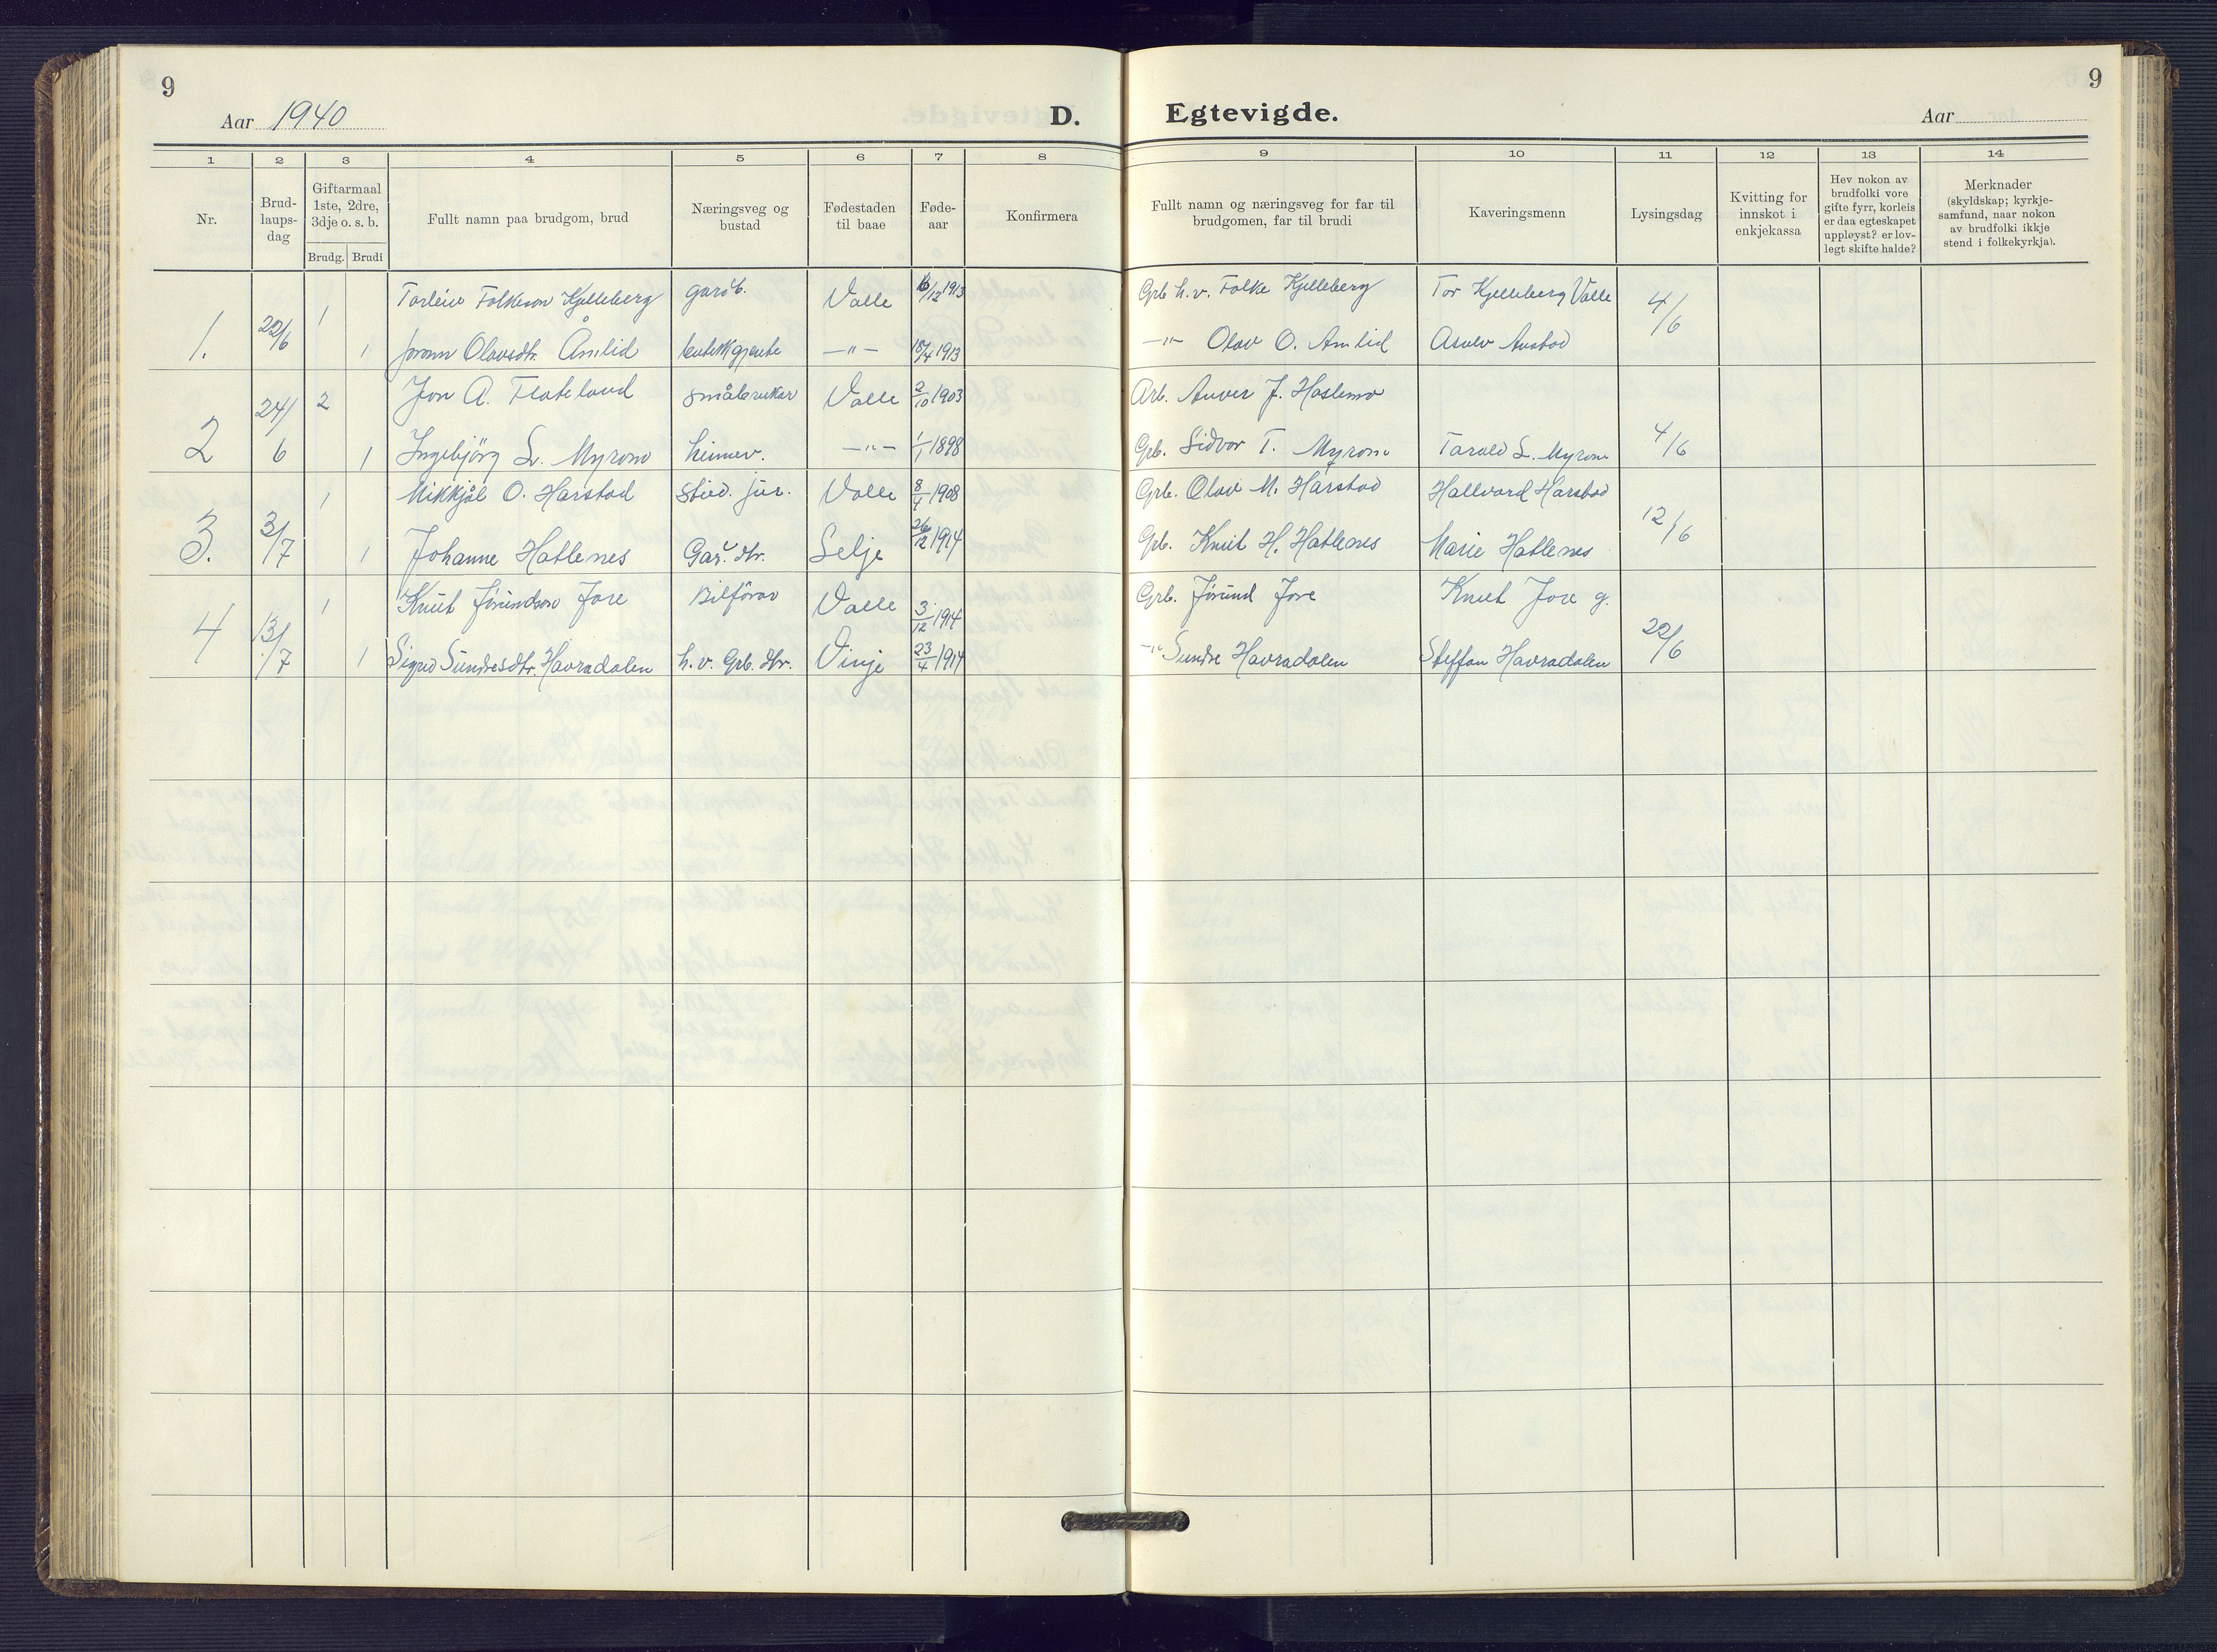 9
9
Aar 1940
D.
Egtevigde.
Aar
1 2 3 4 5 6 7 8 9 10 11 12 13 14
Nr.
Brud-
laups-
dag
Giftarmaal
1ste, 2dre,
3dje o. s. b.
Brudg. Brudi
Fullt namn paa brudgom, brud
Næringsveg og
bustad
Fødestaden
til baae
Føde-
aar
Konfirmera
Fullt namn og næringsveg for far til
brudgomen, far til brudi
Kaveringsmenn
Lysingsdag
Kvitting for
innskot i
enkjekassa
Hev nokon av
brudfolki vore
gifte fyrr, korleis
er daa egteskapet
uppløyst? er lov-
legt skifte halde?
Merknader
(skyldskap; kyrkje-
samfund, naar nokon
av brudfolki ikkje
stend i folkekyrkja).
1. 22/6 1 Torleiv Folkeson Kjelleberg gardb. Valle 16/12 1913 Grb h.v. Folke Kjelleberg Tor Kjelleberg Valle 4/6
1 Jorann Olavsdtr. Åmlid butikkgjente —"— 18/4 1913 —"— Olav O. Åmlid Austad
2 24/6 2 Jon A. Flateland småbrukar Valle 2/10 1903 Arb. J. Haslemo
1 Ingebjörg S. Myrom heimev. —"— 1/1 1898 Grb. Sidvor T. Myrom Tarald S. Myrom 4/6
3. 3/7 1 Mikkjål O. Harstad stud. jur. Valle 8/4 1908 Grb. Olav M. Harstad Hallvard Harstad 12/6
1 Johanne Hatlenes Gar. dtr. Selje 26/12 1914 Grb. Knut H. Hatlenes Marie Hatlenes
4 13/7 1 Knut Jörundson Jore Bilförar Valle 3/12 1914 Grb. Jörund Jore Knut Jore g.
1 Sigrid Sundresdtr. Havradalen h.v. Grb. dtr. Vinje 23/4 1914 —"— Sundre Havradalen Steffan Havradalen 22/6